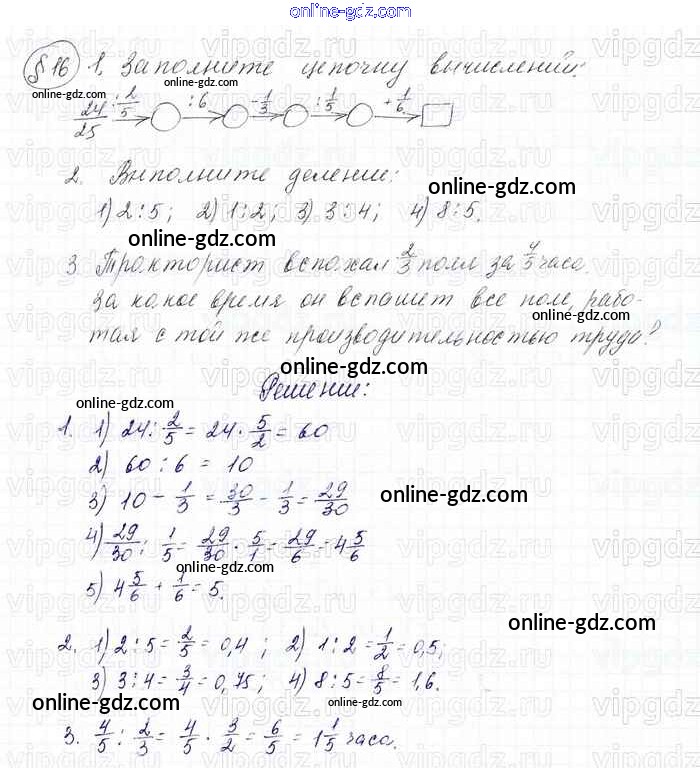 online-gdz.com
§16 1. Заполните цепочку вычислений:
online-gdz.com online-gdz.com
24/25 :2/5 → ○ :6 → ○ -1/3 → ○ :1/5 → ○ +1/6 → □
online-gdz.com online-gdz.com
2. Выполните деление:
online-gdz.com
1) 2:5; 2) 1:2; 3) 3:4; 4) 8:5.
online-gdz.com
3 Тракторист вспахал 2/3 поля за 4/5 часа.
За какое время он вспашет все поле, рабо-
тая с той же производительностью труда?
online-gdz.com
Решение:
online-gdz.com
1. 1) 24:2/5 = 24·5/2 = 60
2) 60:6 = 10
3) 10 - 1/3 = 30/3 - 1/3 = 29/30
online-gdz.com
4) 29/30 : 1/5 = 29/30 · 5/1 = 29/6 = 4 5/6
online-gdz.com
5) 4 5/6 + 1/6 = 5.
online-gdz.com
2. 1) 2:5 = 2/5 = 0,4; 2) 1:2 = 1/2 = 0,5;
online-gdz.com
3) 3:4 = 3/4 = 0,75; 4) 8:5 = 8/5 = 1,6.
online-gdz.com online-gdz.com
3. 4/5 : 2/3 = 4/5 · 3/2 = 6/5 = 1 1/5 часа.
online-gdz.com
vipgdz.ru